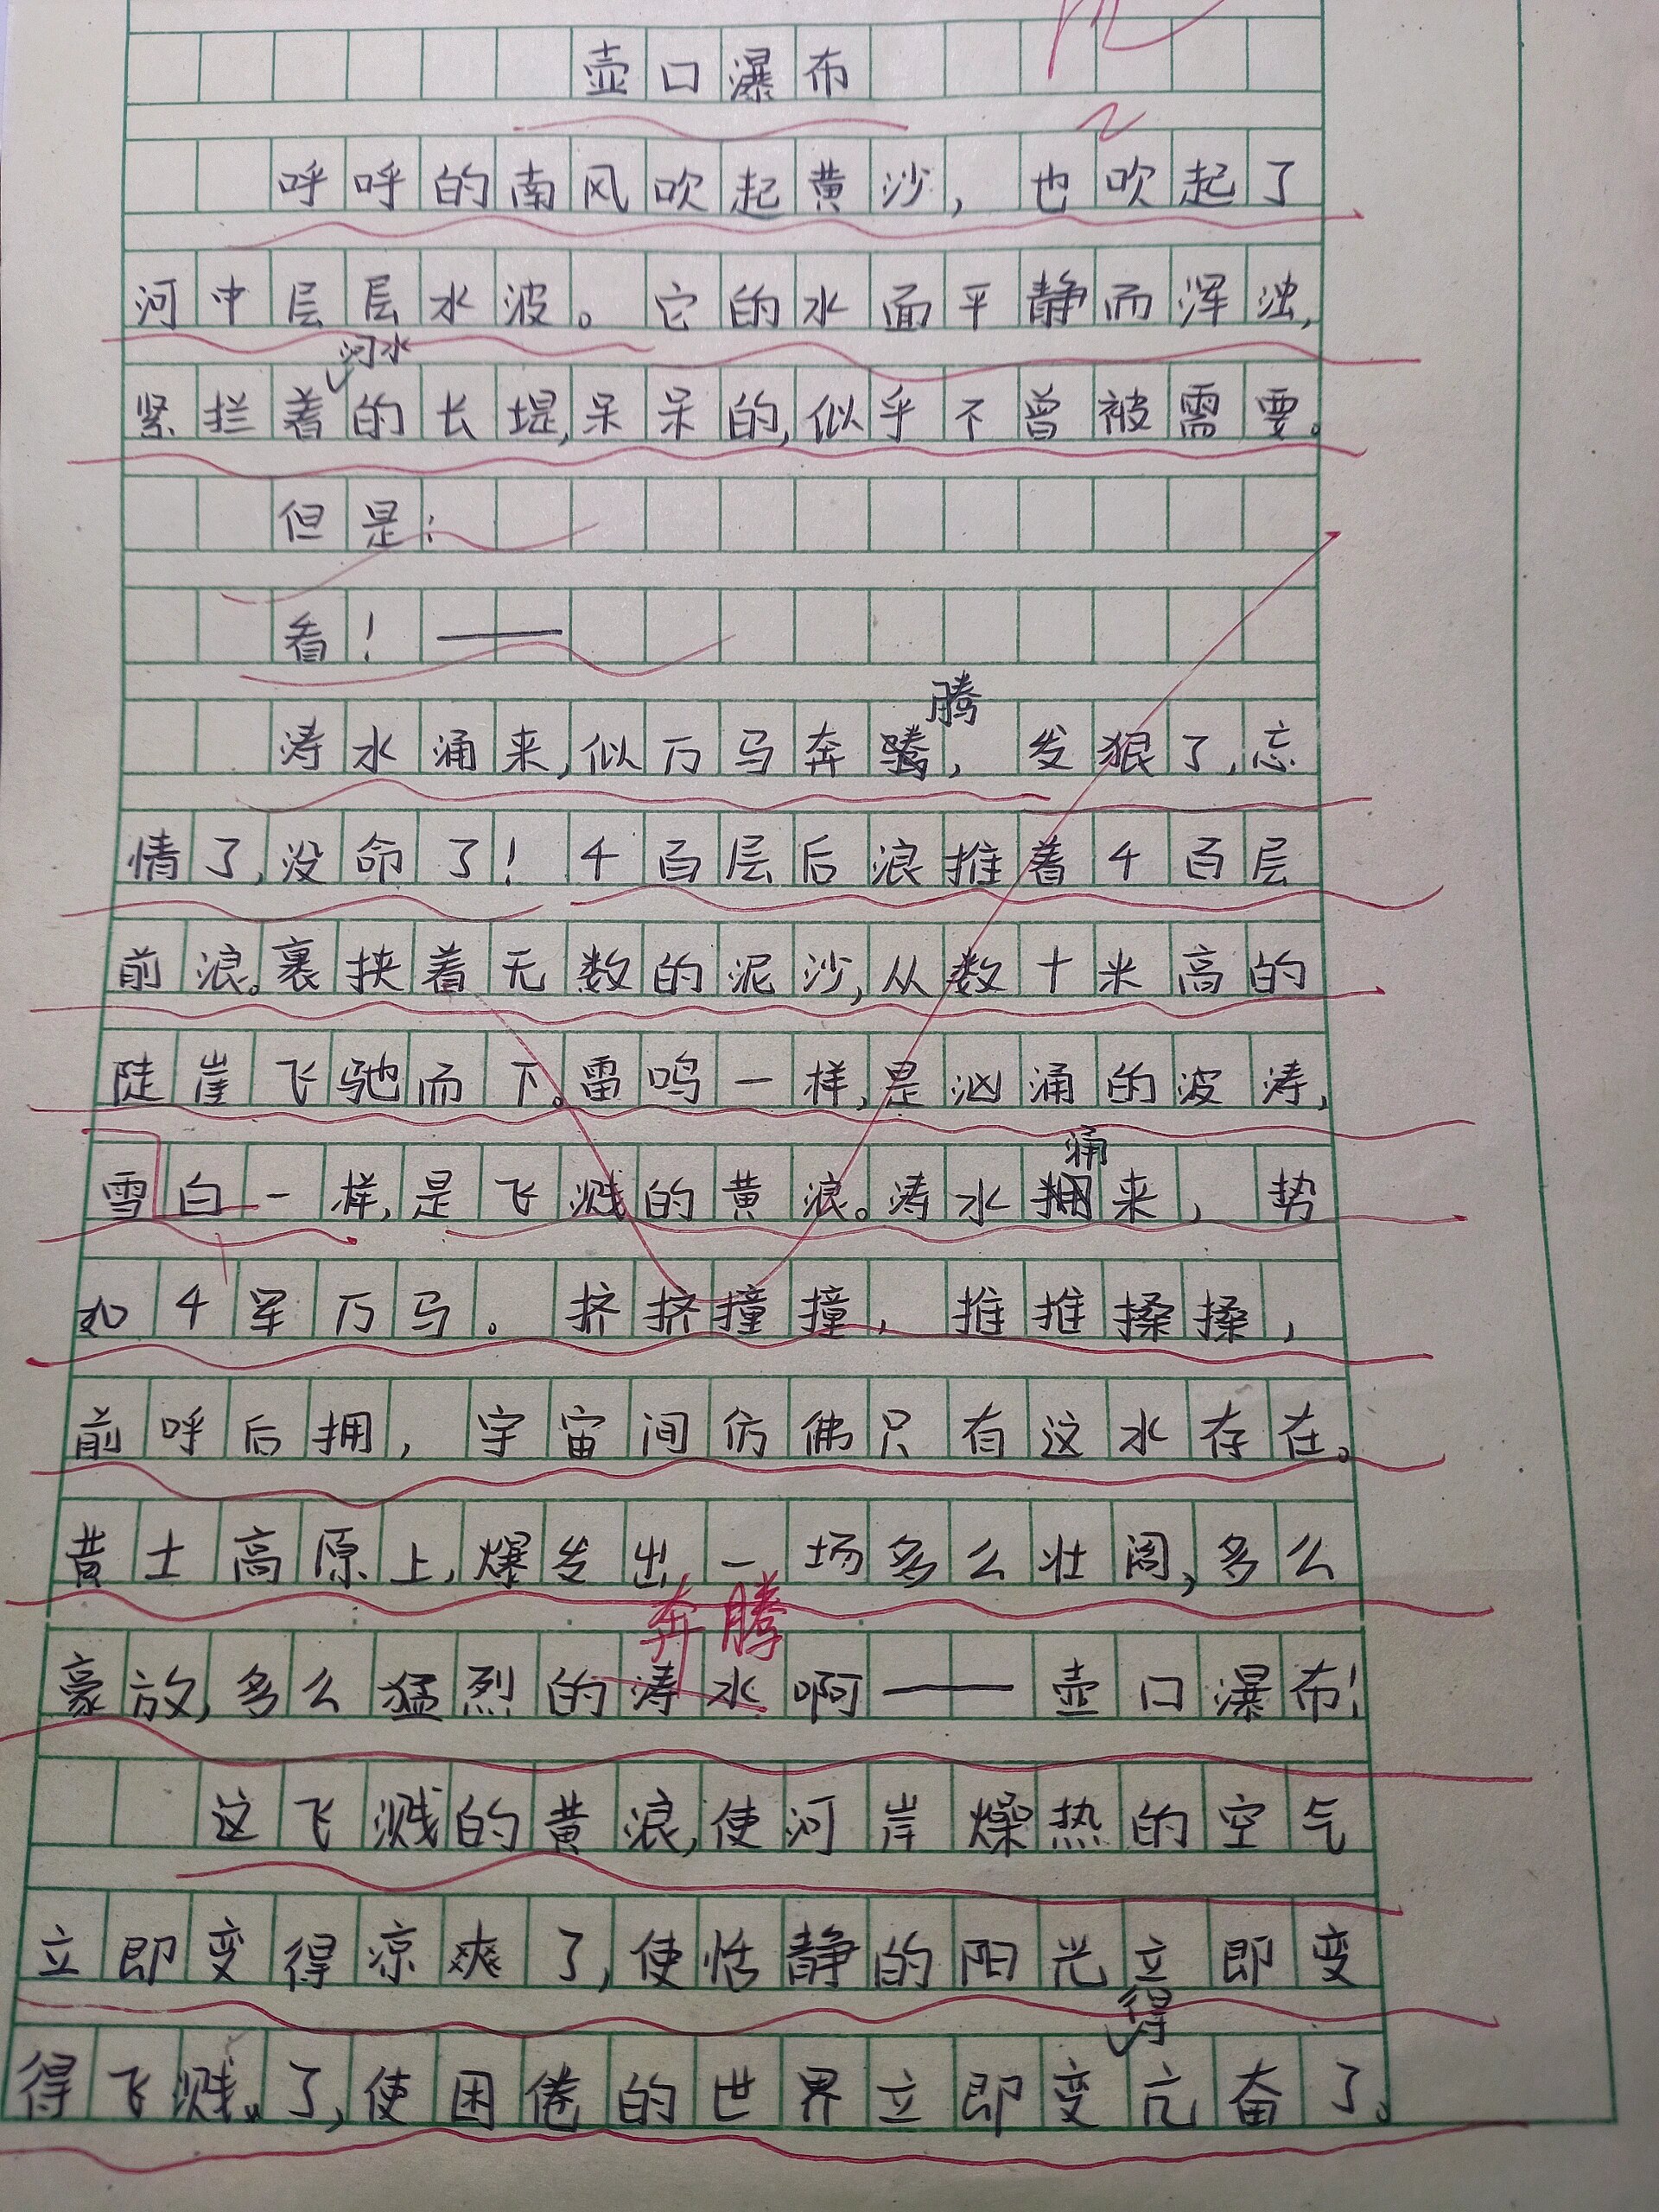 壶口瀑布
呼呼的南风吹起黄沙，也吹起了
河中层层水波。它的水面平静而浑浊，
河水
紧拦着的长堤，呆呆的，似乎不曾被需要。
但是：
看！——
腾
涛水涌来，似万马奔腾，发狠了，忘
情了，没命了！千百层后浪推着千百层
前浪。裹挟着无数的泥沙，从数十米高的
陡崖飞驰而下。雷鸣一样，是汹涌的波涛，
涌
雪白一样，是飞溅的黄浪。涛水拥来，势
如千军万马。挤挤撞撞，推推搡搡，
前呼后拥，宇宙间仿佛只有这水存在。
黄土高原上，爆发出一场多么壮阔，多么
奔腾
豪放，多么猛烈的涛水啊——壶口瀑布！
这飞溅的黄浪，使河岸燥热的空气
立即变得凉爽了，使恬静的阳光立即变
得
得飞溅了，使困倦的世界立即变亢奋了。